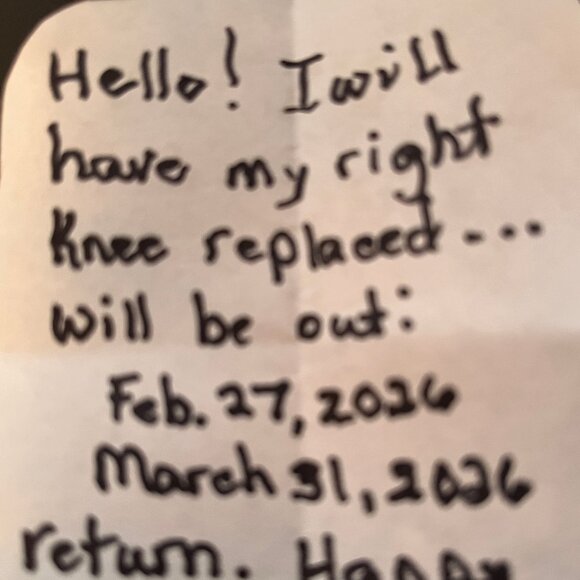 Hello! I will
have my right
Knee replaced...
will be out:
Feb. 27, 2026
March 31, 2026
return. Happy